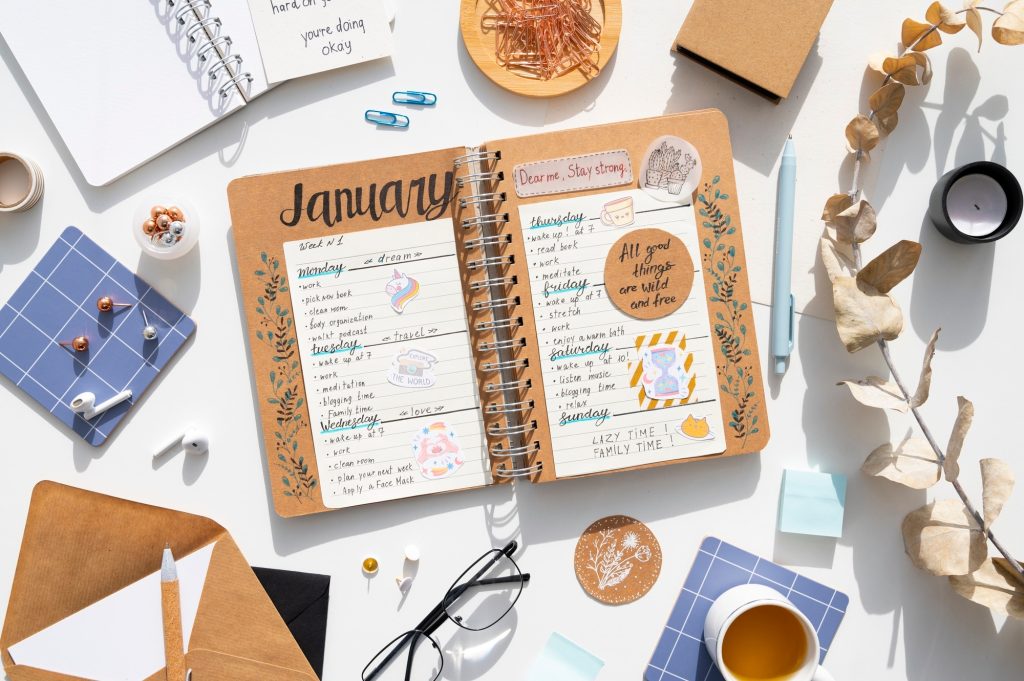 hard on
you're doing
okay
January
Week N 1
monday
« dream »
• work
• pick new book
• clean room
• body organization
• walk+ podcast
tuesday
« travel »
• wake up at 7
• work
• meditation
• blogging time
• Family time
EXPLORE
THE WORLD
Wednesday
« love »
• wake up at 7
• work
• clean room
• plan your next week
• Apply a Face Mask
Dear me, Stay strong.
thursday
• wake up ! at 7
• read book
• work
• meditate
friday
• wake up at 7
• stretch
• work
• enjoy a warm bath
All good
things
are wild
and free
saturday
• wake up at 10!
• listen music
• blogging time
• relax
sunday
LAZY TIME !
FAMILY TIME !